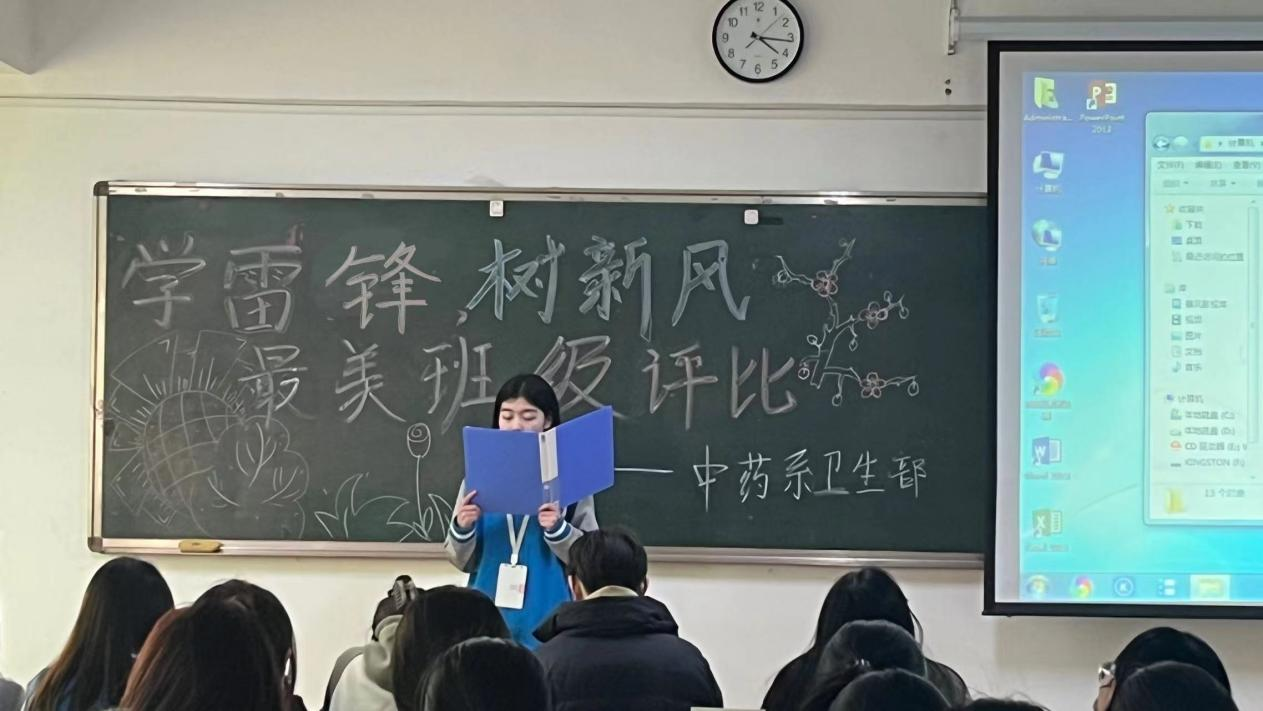 学雷锋 树新风
最美班级评比
——中药系卫生部
12
1
2
3
4
5
6
7
8
9
10
11
Administra...
PowerPoint
2013
计算机
文件(F) 编辑(E) 查看(V)
收藏夹
下载
桌面
最近访问的位置
库
视频
图片
文档
音乐
计算机
本地磁盘 (C:)
本地磁盘 (D:)
CD 驱动器 (E:)
KINGSTON (F:)
13 个对象